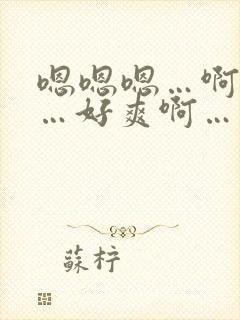 嗯嗯嗯…啊
…好爽啊…
蘇柠